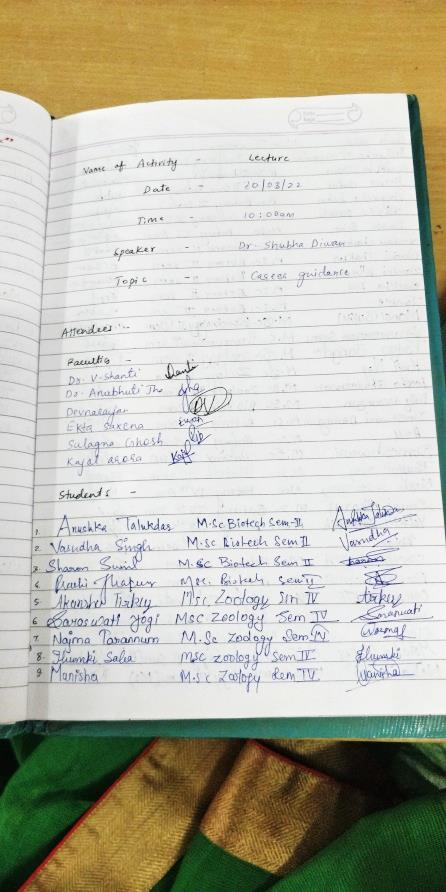 Name of Activity - Lecture
Date - 20/03/22
Time - 10:00am
Speaker - Dr. Shubha Diwan
Topic - "Career guidance"
Attendees :-
Faculties -
Dr. V. Shanti
Dr. Anubhuti Jha
Devnarayan DV
Ekta Saxena
Sulagna Ghosh
Kajal arora
Students -
1. Anushka Talukdar M.Sc Biotech Sem-II
2. Vasudha Singh M.Sc Biotech Sem II Vasudha
3. Sharon M.Sc Biotech Sem II
4. Msc. Biotech sem II
5. Akansha Tirkey Msc Zoology Sem IV Tirkey
6. Saraswati Yogi Msc Zoology Sem IV Saraswati
7. Najma Tarannum M.Sc Zoology Sem IV
8. Jhumki Saha Msc zoology Sem IV Jhumki
9. Manisha M.Sc Zoology Sem IV Manisha